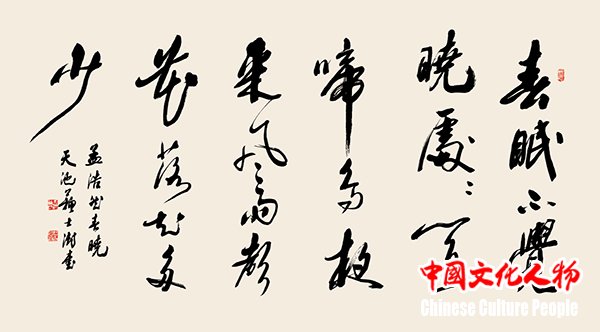 春眠不覺
曉處〻聞
啼鳥夜
來風雨聲
花落知多
少
孟浩然春曉
天池蘇士澍書
中國文化人物
Chinese Culture People